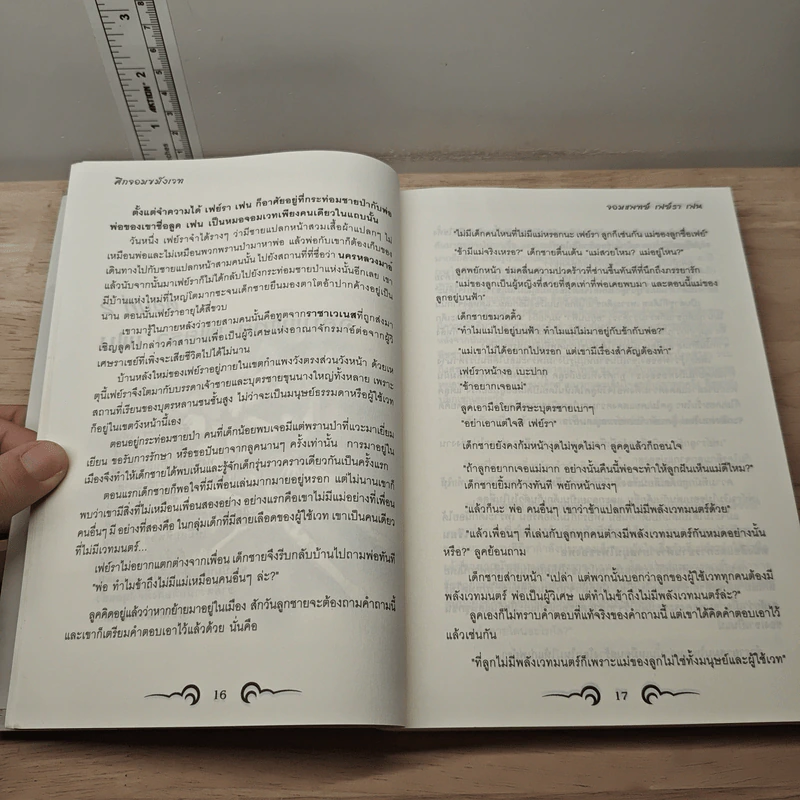 3
2
1
8
7
6
5
4
3
2
1
ศึกจอมขมังเวท
ตั้งแต่จำความได้ เฟย์รา เฟน ก็อาศัยอยู่ที่กระท่อมชายป่ากับพ่อ
พ่อของเขาชื่อลูค เฟน เป็นหมอจอมเวทเพียงคนเดียวในแถบนั้น
วันหนึ่ง เฟย์ราจำได้รางๆ ว่ามีชายแปลกหน้าสวมเสื้อผ้าแปลกๆ ไม่
เหมือนพ่อและไม่เหมือนพวกพรานป่ามาหาพ่อ แล้วพ่อกับเขาก็ต้องเก็บของ
เดินทางไปกับชายแปลกหน้าสามคนนั้น ไปยังสถานที่ที่ชื่อว่า นครหลวงมาอ์
แล้วนับจากนั้นมาเฟย์ราก็ไม่ได้กลับไปยังกระท่อมชายป่าแห่งนั้นอีกเลย เขา
มีบ้านแห่งใหม่ที่ใหญ่โตมากซะจนเด็กชายยืนมองตาโตอ้าปากค้างอยู่เป็น
นาน ตอนนั้นเฟย์ราอายุได้สี่ขวบ
เขามารู้ในภายหลังว่าชายสามคนนั้นคือทูตจากราชาเวเนสที่ถูกส่งมา
เชิญลูคไปกล่าวคำสาบานเพื่อเป็นผู้วิเศษแห่งอาณาจักรมาอ์ต่อจากผู้วิ
เศษราเซย์ที่เพิ่งจะเสียชีวิตไปได้ไม่นาน
บ้านหลังใหม่ของเฟย์ราอยู่ภายในเขตกำแพงวังตรงส่วนวังหน้า ด้วยเห
ตุนี้เฟย์ราจึงโตมากับบรรดาเจ้าชายและบุตรชายขุนนางใหญ่ทั้งหลาย เพราะ
สถานที่เรียนของบุตรหลานชนชั้นสูง ไม่ว่าจะเป็นมนุษย์ธรรมดาหรือผู้ใช้เวท
ก็อยู่ในเขตวังหน้านี้เอง
ตอนอยู่กระท่อมชายป่า คนที่เด็กน้อยพบเจอมีแต่พรานป่าที่แวะมาเยี่ยม
เยียน ขอรับการรักษา หรือขอปันยาจากลูคนานๆ ครั้งเท่านั้น การมาอยู่ใน
เมืองจึงทำให้เด็กชายได้พบเห็นและรู้จักเด็กรุ่นราวคราวเดียวกันเป็นครั้งแรก
ตอนแรกเด็กชายก็พอใจที่มีเพื่อนเล่นมากมายอยู่หรอก แต่ไม่นานเขาก็
พบว่าเขามีสิ่งที่ไม่เหมือนเพื่อนสองอย่าง อย่างแรกคือเขาไม่มีแม่อย่างที่เพื่อน
คนอื่นๆ มี อย่างที่สองคือ ในกลุ่มเด็กที่มีสายเลือดของผู้ใช้เวท เขาเป็นคนเดียว
ที่ไม่มีเวทมนตร์...
เฟย์ราไม่อยากแตกต่างจากเพื่อน เด็กชายจึงรีบกลับบ้านไปถามพ่อทันที
"พ่อ ทำไมข้าถึงไม่มีแม่เหมือนคนอื่นๆ ล่ะ?"
ลูคคิดอยู่แล้วว่าหากย้ายมาอยู่ในเมือง สักวันลูกชายจะต้องถามคำถามนี้
และเขาก็เตรียมคำตอบเอาไว้แล้วด้วย นั่นคือ
16
จอมแพทย์ เฟย์รา เฟน
"ไม่มีเด็กคนไหนที่ไม่มีแม่หรอกนะ เฟย์รา ลูกก็เช่นกัน แม่ของลูกชื่อเฟย์"
"ข้ามีแม่จริงเหรอ?" เด็กชายตื่นเต้น "แม่สวยไหม? แม่อยู่ไหน?"
ลูคพยักหน้า ข่มคลื่นความปวดร้าวที่ซ่านขึ้นทันทีที่นึกถึงภรรยารัก
"แม่ของลูกเป็นผู้หญิงที่สวยที่สุดเท่าที่พ่อเคยพบมา และตอนนี้แม่ของ
ลูกอยู่บนฟ้า"
เด็กชายขมวดคิ้ว
"ทำไมแม่ไปอยู่บนฟ้า ทำไมแม่ไม่มาอยู่กับข้ากับพ่อ?"
"แม่เขาไม่ได้อยากไปหรอก แต่เขามีเรื่องสำคัญต้องทำ"
เฟย์ราหน้างอ เบะปาก
"ข้าอยากเจอแม่"
ลูคเอามือโยกศีรษะบุตรชายเบาๆ
"อย่าเอาแต่ใจสิ เฟย์รา"
เด็กชายยังคงก้มหน้างุดไม่พูดไม่จา ลูคดูแล้วก็ถอนใจ
"ถ้าลูกอยากเจอแม่มาก อย่างนั้นคืนนี้พ่อจะทำให้ลูกฝันเห็นแม่ดีไหม?"
เด็กชายยิ้มกว้างทันที พยักหน้าแรงๆ
"แล้วก็นะ พ่อ คนอื่นๆ เขาว่าข้าแปลกที่ไม่มีพลังเวทมนตร์ด้วย"
"แล้วเพื่อนๆ ที่เล่นกับลูกทุกคนต่างมีพลังเวทมนตร์กันหมดอย่างนั้น
หรือ?" ลูคย้อนถาม
เด็กชายส่ายหน้า "เปล่า แต่พวกนั้นบอกว่าลูกของผู้ใช้เวททุกคนต้องมี
พลังเวทมนตร์ พ่อเป็นผู้วิเศษ แต่ทำไมข้าถึงไม่มีพลังเวทมนตร์ล่ะ?"
ลูคเองก็ไม่ทราบคำตอบที่แท้จริงของคำถามนี้ แต่เขาได้คิดคำตอบเอาไว้
แล้วเช่นกัน
"ที่ลูกไม่มีพลังเวทมนตร์ก็เพราะแม่ของลูกไม่ใช่ทั้งมนุษย์และผู้ใช้เวท"
17